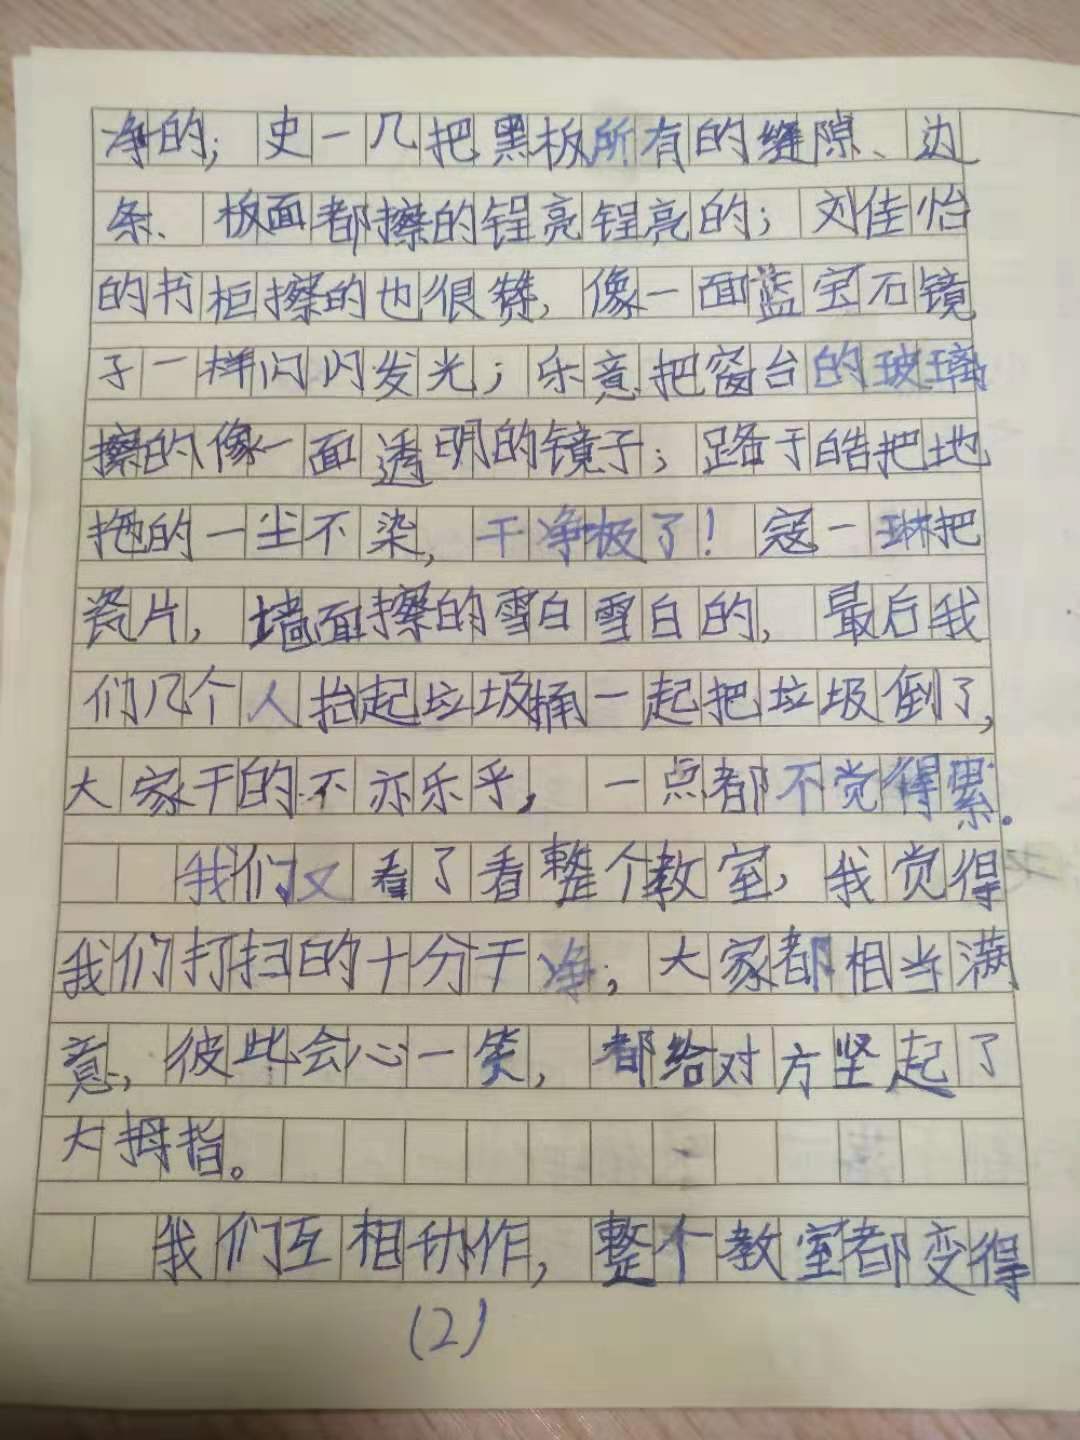 净的；史一几把黑板所有的缝隙、边
条、板面都擦的锃亮锃亮的；刘佳怡
的书柜擦的也很赞，像一面蓝宝石镜
子一样闪闪发光；乐意把窗台的玻璃
擦的像一面透明的镜子；路于皓把地
拖的一尘不染，干净极了！寇一琳把
瓷片，墙面擦的雪白雪白的，最后我
们几个人抬起垃圾桶一起把垃圾倒了，
大家干的不亦乐乎，一点都不觉得累。
我们又看了看整个教室，我觉得
我们打扫的十分干净，大家都相当满
意，彼此会心一笑，都给对方坚起了
大拇指。
我们互相协作，整个教室都变得
(2)